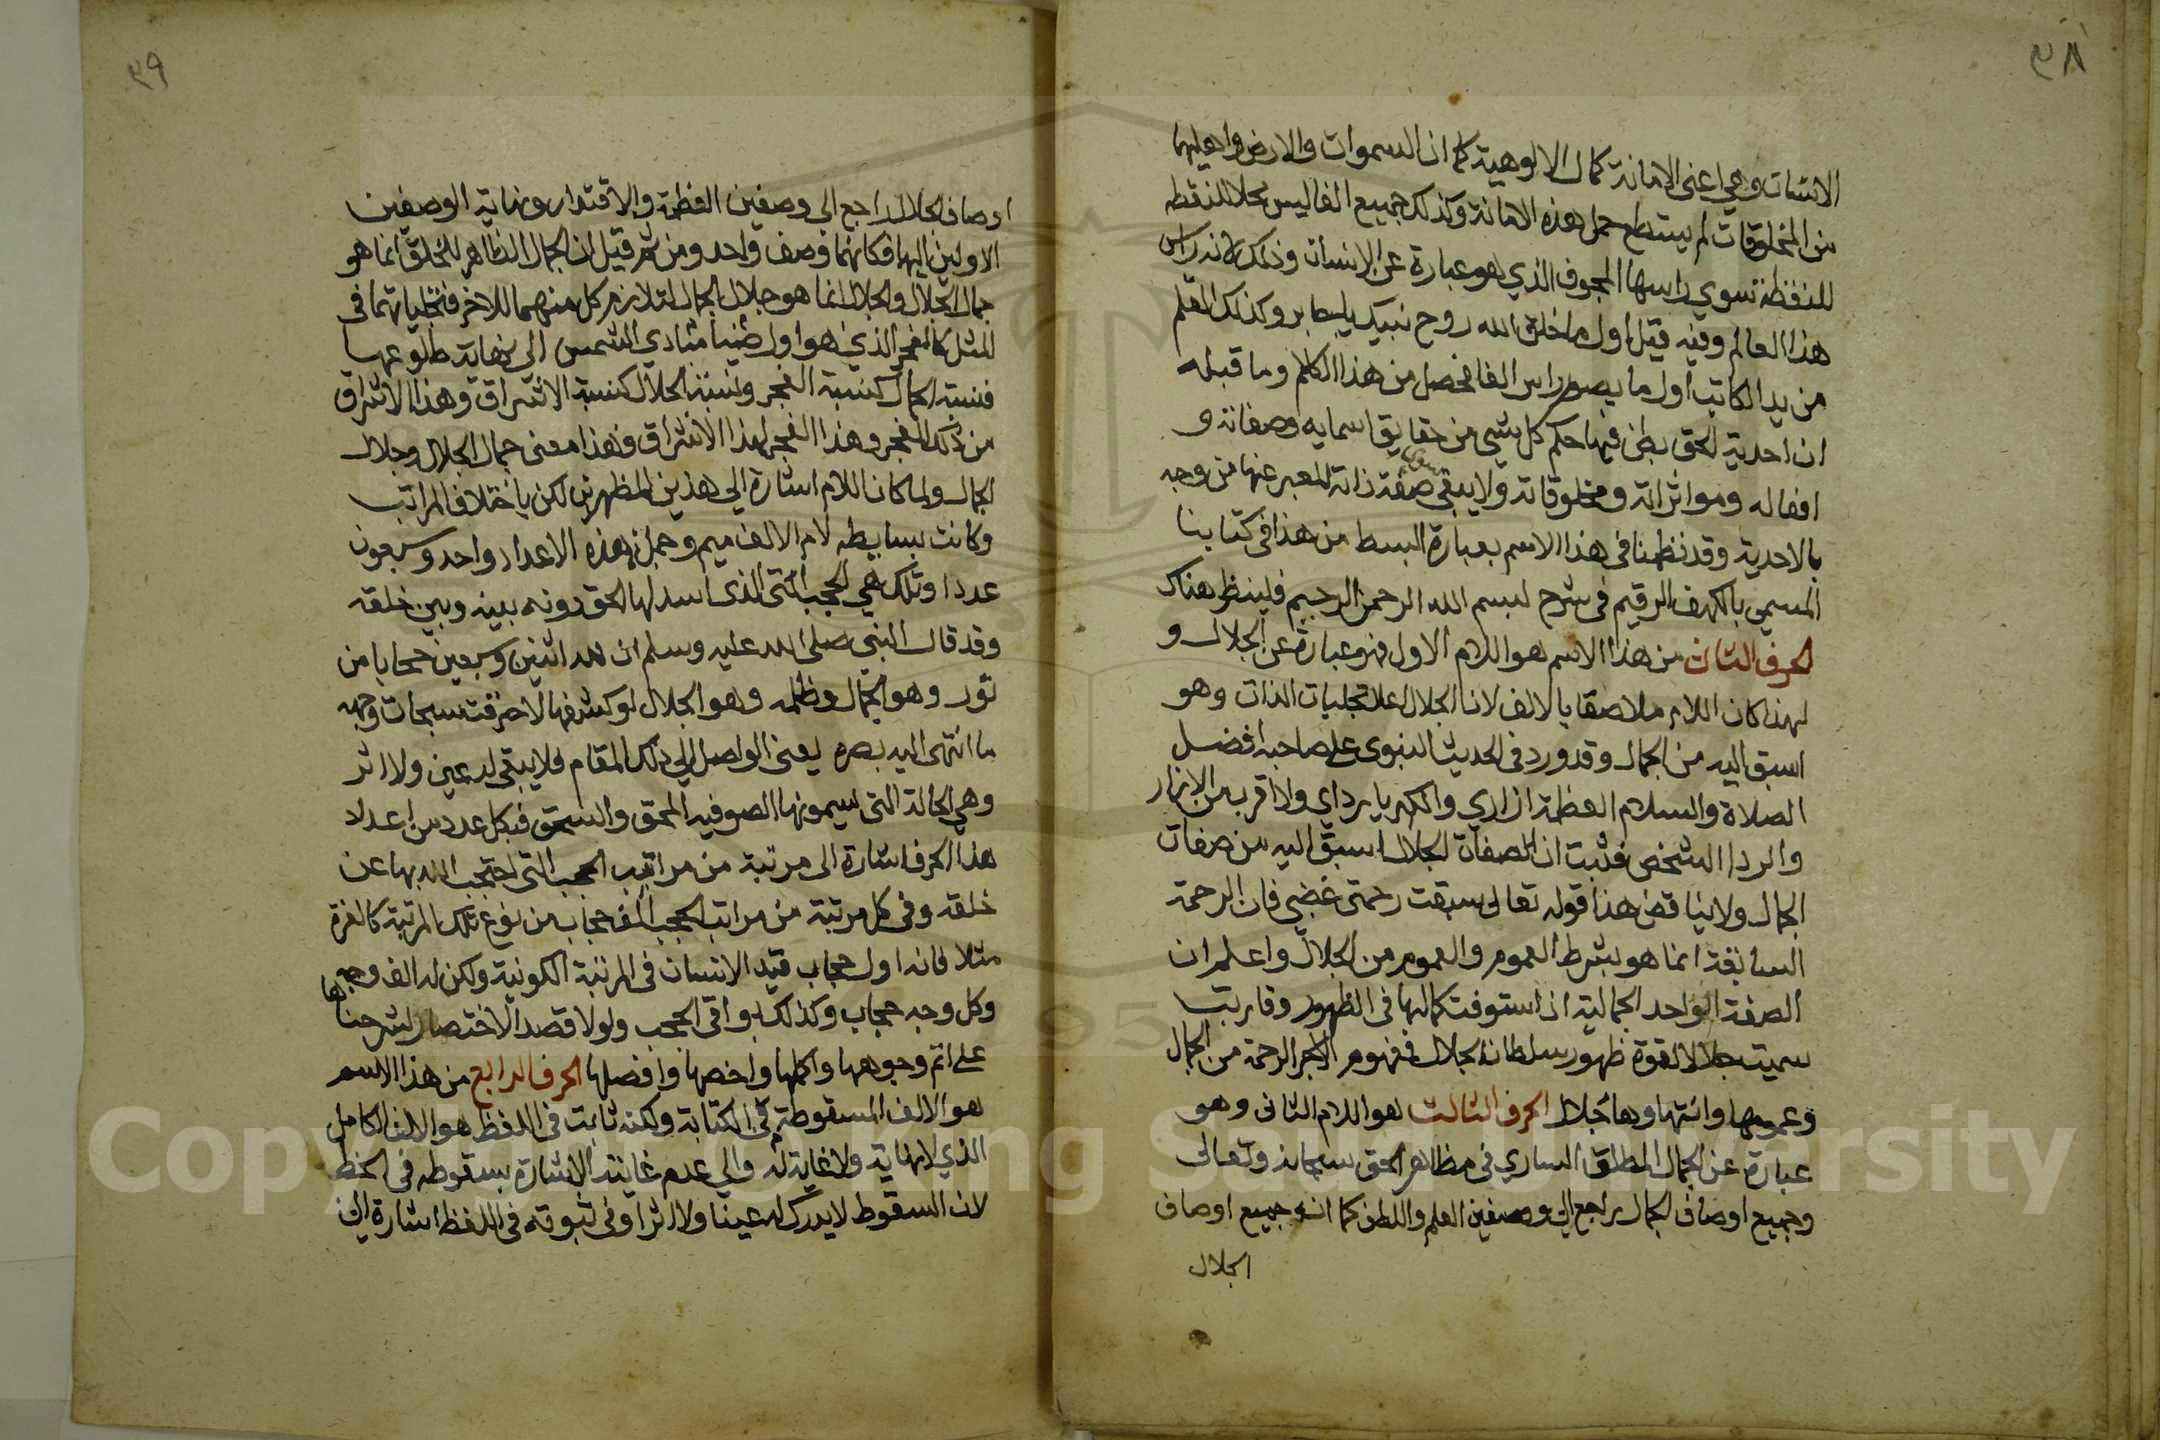 ٣٨
الانسان وهي اعني الامانة كمال الالوهية كما ان السموات والارض واهليهما
من المخلوقات لم يستطع حمل هذه الامانة وكذلك جميع الفا ليس محلا للنقطه
للنقطة سوي راسها المجوف الذي هو عبارة عن الانسان وذلك لانه راس
هذا العالم وفيه قيل اول ما خلق الله روح نبيك يا جابر وكذلك القلم
من يد الكاتب اول ما يصور راس الفا فحصل من هذا الكلام وما قبله
ان احدية الحق بطن فيها حكم كل شي من حقايق اسمايه وصفاته و
افعاله وموثراته ومخلوقاته ولا يبقي صفة ذاته المعبر عنها من وجه
بالاحدية وقد نظمنا في هذا الاسم بعبارة البسط من هذا في كتابنا
المسمي بالكهف الرقيم في شرح بسم الله الرحمن الرحيم فلينظر هناك
الحرف الثان من هذا الاسم هو اللام الاول فهو عبارة عن الجلال و
لهذا كان اللام ملاصقا بالالف لان الجلال اعلا تجليات الذات وهو
اسبق اليه من الجمال وقد ورد في الحديث النبوى على صاحبه افضل
الصلاة والسلام العظمة ازاري والكبريا رداي ولا اقرب من الازار
والردا الشخص فثبت ان الصفات الجلال اسبق اليه من صفات
الجمال ولا يناقض هذا قوله تعالى سبقت رحمتي غضبي فان الرحمة
السابقة انما هو بشرط العموم والعموم من الجلال واعلم ان
الصفة الواحد الجمالية اذا استوفت كمالها في الظهور وقاربت
سميت جلالا لقوة ظهور سلطان الجلال فمفهوم الرحمة من الجمال
وعمومها وانتهاوها جلال الحرف الثالث هو اللام الثاني وهو
عبارة عن الجمال المطلق الساري في مظاهر الحق سبحانه وتعالى
وجميع اوصاف الجمال راجع الي وصفين العلم واللطف كما انه جميع اوصاف
الجلال
٣٩
اوصاف الجلال راجع الى وصفين العظمة والاقتدار ونهاية الوصفين
الاولين اليهما فكانهما وصف واحد ومن ثم قيل ان الجمال الظاهر للخلق انما هو
جمال الجلال والجلال انما هو جلال الجمال لتلازم كل منهما للاخر فتجلياتهما في
المثل كالفجر الذي هو اول ضيا مبادي الشمس الى نهاية طلوعها
فنسبة الجمال كنسبة الفجر ونسبة الجلال كنسبة الاشراق وهذا الاشراق
من ذلك الفجر وهذا الفجر لهذا الاشراق فهذا معنى جمال الجلال وجلال
الجمال ولما كان اللام اشارة الي هذين المظهرين لكن باختلاف المراتب
وكانت بسايطه لام الف ميم وجملة هذه الاعداد واحد وسبعون
عددا وتلك هي الحجب التي الذى اسدلها الحق دونه بينه وبين خلقه
وقد قال النبي صلى الله عليه وسلم ان لله اثنين وسبعين حجابا من
نور وهو الجمال وظلمه وهو الجلال لو كشفها لاحرقت سبحات وجهه
ما انتهى اليه بصره يعني الواصل الي ذلك المقام فلا يبقى له عين ولا اثر
وهي الحالة التي يسمونها الصوفيه المحق والسحق فبكل عدد من اعداد
هذا الحرف اشارة الى مرتبة من مراتب الحجب التي احتجب الله بها عن
خلقه وفي كل مرتبة من مراتب الحجب الف حجاب من نوع تلك المرتبة كالعزة
مثلا فانه اول حجاب قيد الانسان في المرتبة الكونية ولكن له الف وجه
وكل وجه حجاب وكذلك بواقي الحجب ولولا قصد الاختصار لشرحناها
على اتم وجوهها واكملها واخصها وافضلها الحرف الرابع من هذا الاسم
هو الالف المسقوطة في الكتابة ولكنه ثابت في اللفظ هو الالف الكامل
الذي لا نهاية ولا غاية له والي عدم غايته الاشارة بسقوطه في الخط
لان السقوط لا يدرك له عينا ولا اثرا وفي ثبوته في اللفظ اشارة الي
Copyright © King Saud University